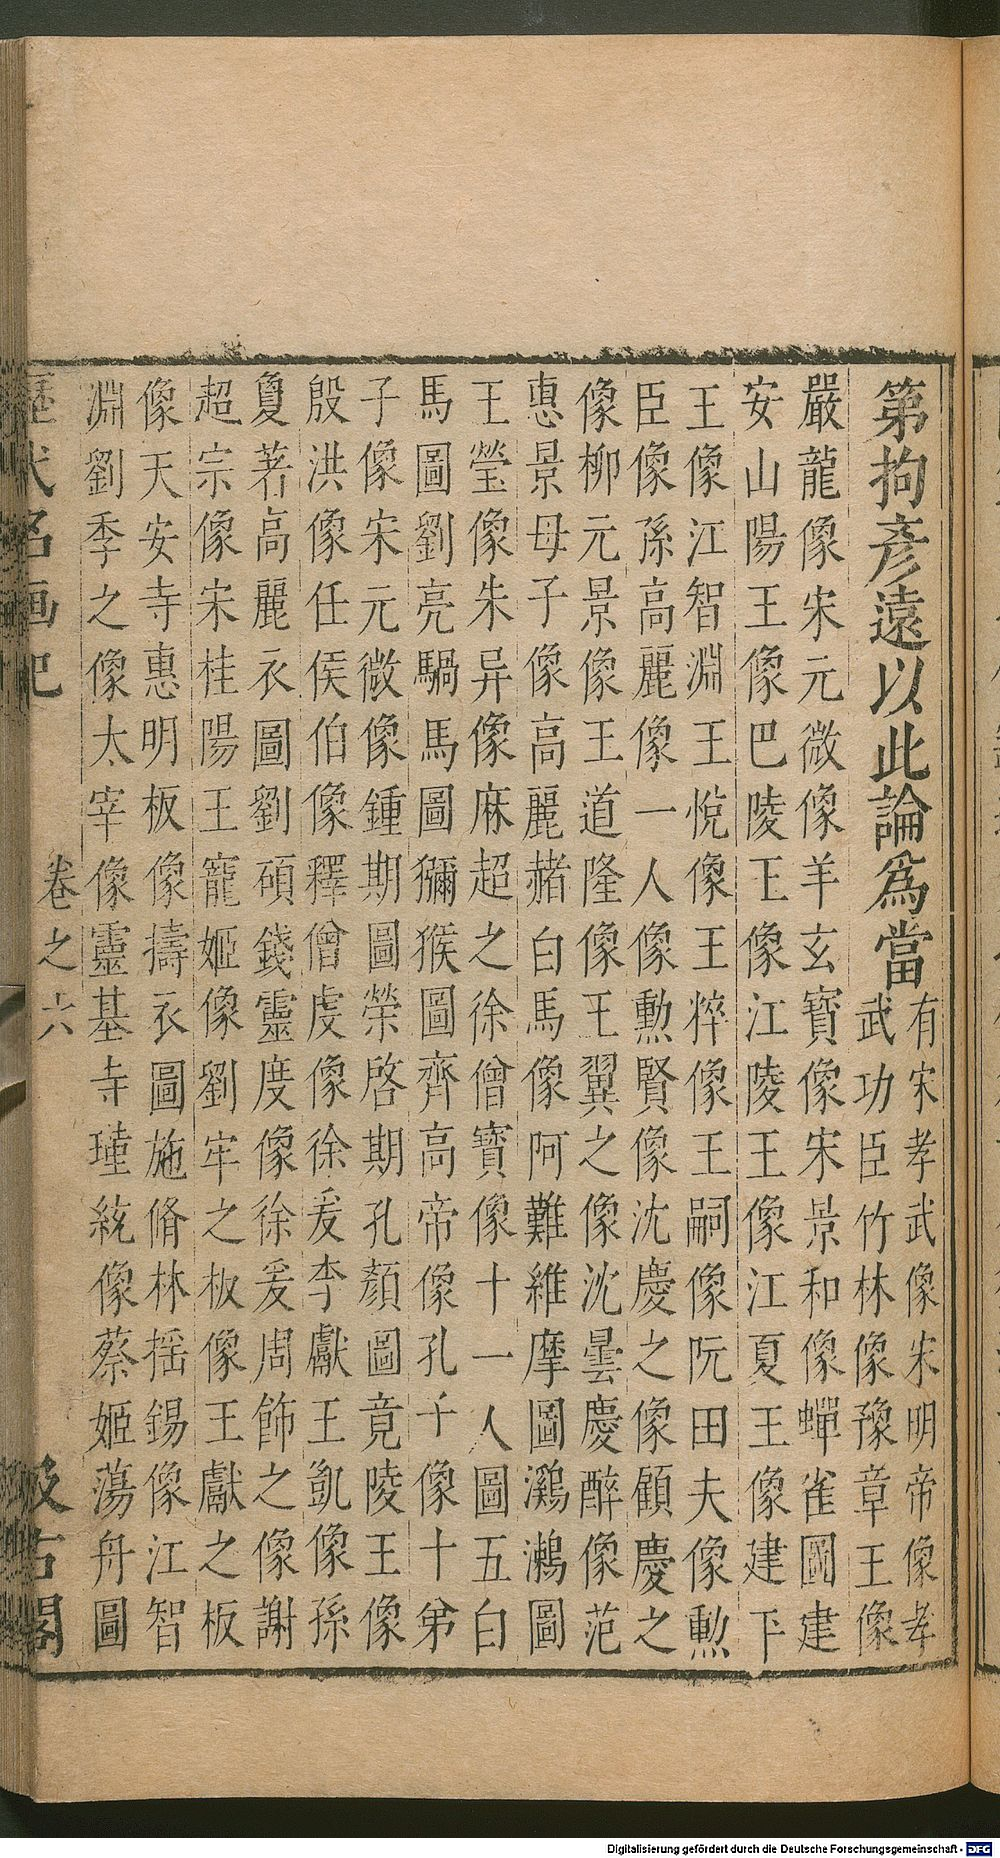 第拘彥遠以此論爲當
有宋孝武像宋明帝像孝
武功臣竹林像豫章王像
嚴龍像宋元微像羊玄寶像宋景和像蟬雀圖建
安山陽王像巴陵王像江陵王像江夏王像建下
王像江智淵王悅像王粹像王嗣像阮田夫像勲
臣像孫高麗像一人像勲賢像沈慶之像顧慶之
像柳元景像王道隆像王翼之像沈曇慶醉像范
惠景母子像高麗赭白馬像阿難維摩圖鸂鶒圖
王瑩像朱异像麻超之徐僧寶像十一人圖五白
馬圖劉亮騧馬圖獼猴圖齊高帝像孔千像十弟
子像宋元微像鍾期圖榮啓期孔顏圖竟陵王像
殷洪像任侯伯像釋僧虔像徐爰李獻王凱像孫
夐著高麗衣圖劉碩錢靈度像徐爰周飾之像謝
超宗像宋桂陽王寵姬像劉牢之板像王獻之板
像天安寺惠明板像擣衣圖施脩林揺錫像江智
淵劉季之像太宰像靈基寺瑾統像蔡姬蕩舟圖
歷代名画記 卷之六 汲古閣
Digitalisierung gefördert durch die Deutsche Forschungsgemeinschaft - DFG